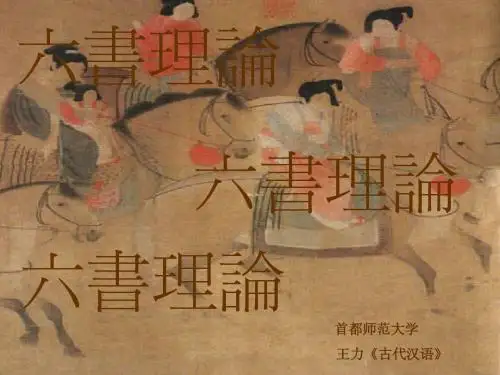 六書理論
六書理論
六書理論
首都师范大学
王力《古代汉语》